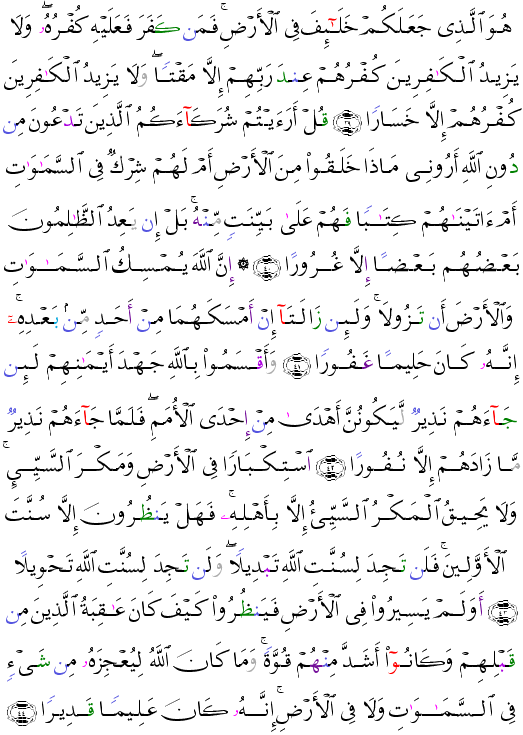 هُوَ ٱلَّذِى جَعَلَكُمْ خَلَـٰٓئِفَ فِى ٱلْأَرْضِ ۚ فَمَن كَفَرَ فَعَلَيْهِ كُفْرُهُۥ ۖ وَلَا
يَزِيدُ ٱلْكَـٰفِرِينَ كُفْرُهُمْ عِندَ رَبِّهِمْ إِلَّا مَقْتًا ۖ وَلَا يَزِيدُ ٱلْكَـٰفِرِينَ
كُفْرُهُمْ إِلَّا خَسَارًا ﴿٣٩﴾ قُلْ أَرَءَيْتُمْ شُرَكَآءَكُمُ ٱلَّذِينَ تَدْعُونَ مِن
دُونِ ٱللَّهِ أَرُونِى مَاذَا خَلَقُوا۟ مِنَ ٱلْأَرْضِ أَمْ لَهُمْ شِرْكٌ فِى ٱلسَّمَـٰوَٰتِ
أَمْ ءَاتَيْنَـٰهُمْ كِتَـٰبًا فَهُمْ عَلَىٰ بَيِّنَتٍ مِّنْهُ ۚ بَلْ إِن يَعِدُ ٱلظَّـٰلِمُونَ
بَعْضُهُم بَعْضًا إِلَّا غُرُورًا ﴿٤٠﴾ ۞ إِنَّ ٱللَّهَ يُمْسِكُ ٱلسَّمَـٰوَٰتِ
وَٱلْأَرْضَ أَن تَزُولَا ۚ وَلَئِن زَالَتَآ إِنْ أَمْسَكَهُمَا مِنْ أَحَدٍ مِّنۢ بَعْدِهِۦٓ ۚ
إِنَّهُۥ كَانَ حَلِيمًا غَفُورًا ﴿٤١﴾ وَأَقْسَمُوا۟ بِٱللَّهِ جَهْدَ أَيْمَـٰنِهِمْ لَئِن
جَآءَهُمْ نَذِيرٌ لَّيَكُونُنَّ أَهْدَىٰ مِنْ إِحْدَى ٱلْأُمَمِ ۖ فَلَمَّا جَآءَهُمْ نَذِيرٌ
مَّا زَادَهُمْ إِلَّا نُفُورًا ﴿٤٢﴾ ٱسْتِكْبَارًا فِى ٱلْأَرْضِ وَمَكْرَ ٱلسَّيِّئِ ۚ
وَلَا يَحِيقُ ٱلْمَكْرُ ٱلسَّيِّئُ إِلَّا بِأَهْلِهِۦ ۚ فَهَلْ يَنظُرُونَ إِلَّا سُنَّتَ
ٱلْأَوَّلِينَ ۚ فَلَن تَجِدَ لِسُنَّتِ ٱللَّهِ تَبْدِيلًا ۖ وَلَن تَجِدَ لِسُنَّتِ ٱللَّهِ تَحْوِيلًا
﴿٤٣﴾ أَوَلَمْ يَسِيرُوا۟ فِى ٱلْأَرْضِ فَيَنظُرُوا۟ كَيْفَ كَانَ عَـٰقِبَةُ ٱلَّذِينَ مِن
قَبْلِهِمْ وَكَانُوٓا۟ أَشَدَّ مِنْهُمْ قُوَّةً ۚ وَمَا كَانَ ٱللَّهُ لِيُعْجِزَهُۥ مِن شَىْءٍ
فِى ٱلسَّمَـٰوَٰتِ وَلَا فِى ٱلْأَرْضِ ۚ إِنَّهُۥ كَانَ عَلِيمًا قَدِيرًا ﴿٤٤﴾